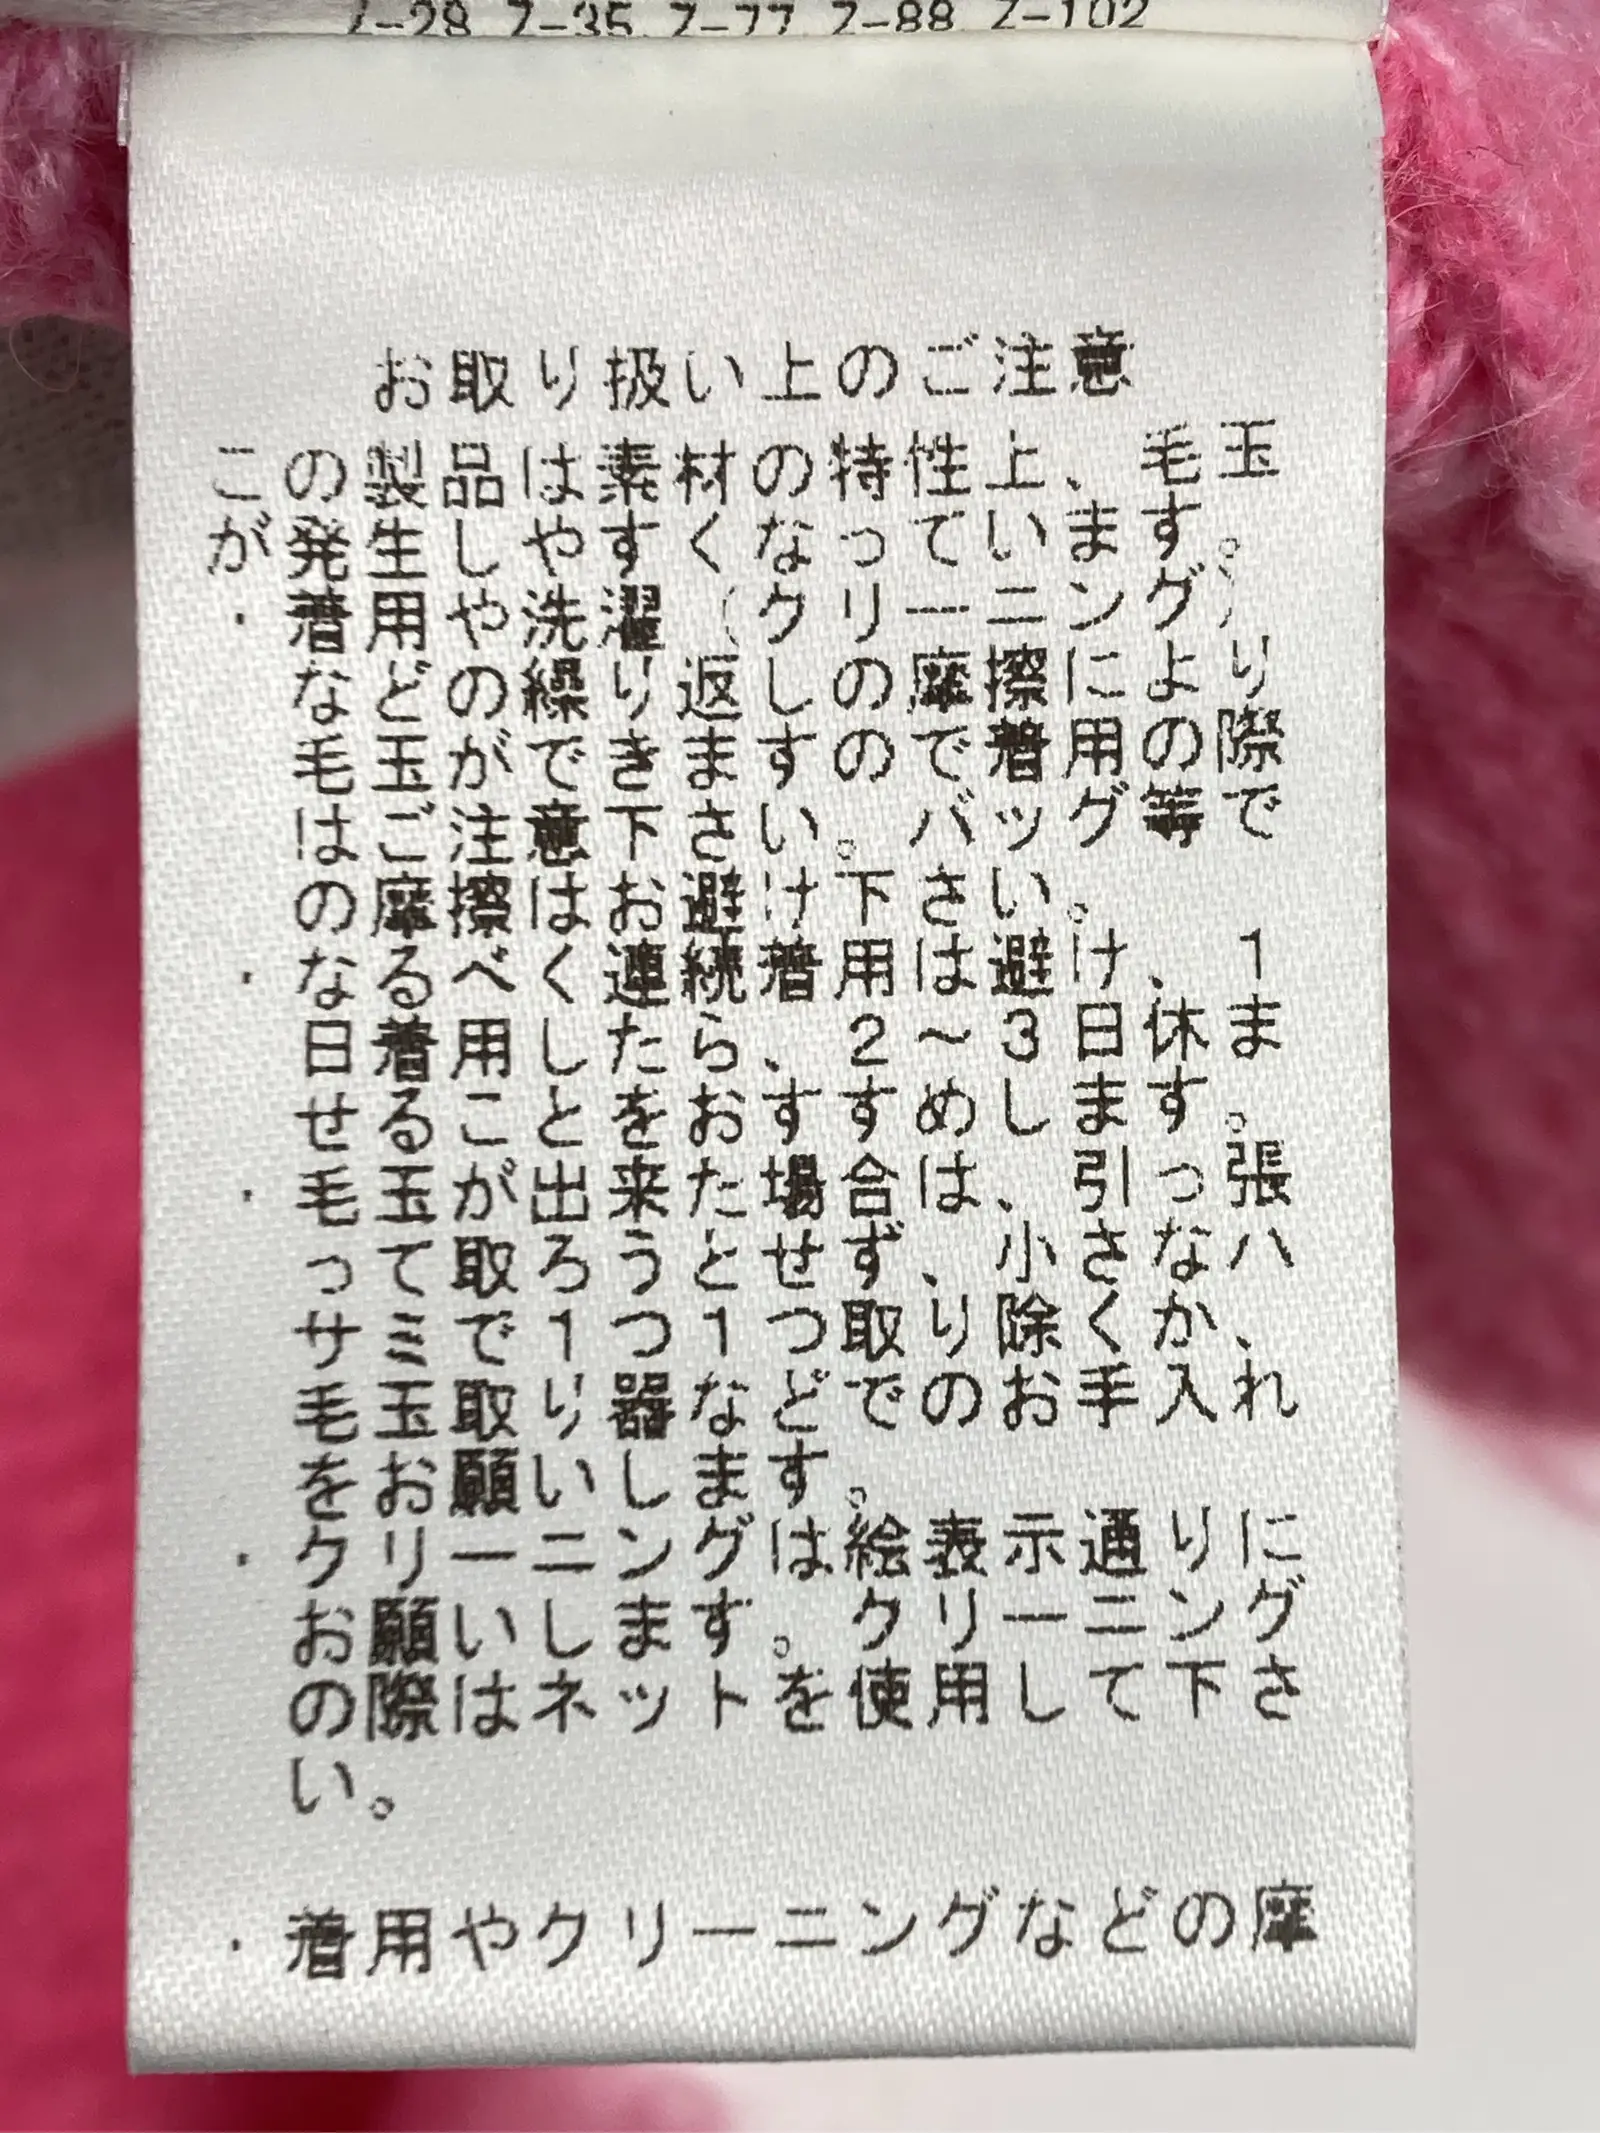 Z-28 Z-35 Z-77 Z-88 Z-102
お取り扱い上のご注意
この製品は素材の特性上、毛玉
が発生しやすくなっています。
・着用や洗濯(クリーニング)
などの繰り返しの摩擦により
毛玉ができますので着用の際
はご注意下さい。バッグ等で
の摩擦はお避け下さい。
・なるべく連続着用は避け、1
日着用したら、2~3日休ま
せることをおすすめします。
・毛玉が出来た場合は、引っ張
って取ろうとせず、小さなハ
サミで1つ1つ取り除くか、
毛玉取り器などでのお手入れ
をお願いします。
・クリーニングは絵表示通りに
お願いします。クリーニング
の際はネットを使用して下さ
い。
・着用やクリーニングなどの摩